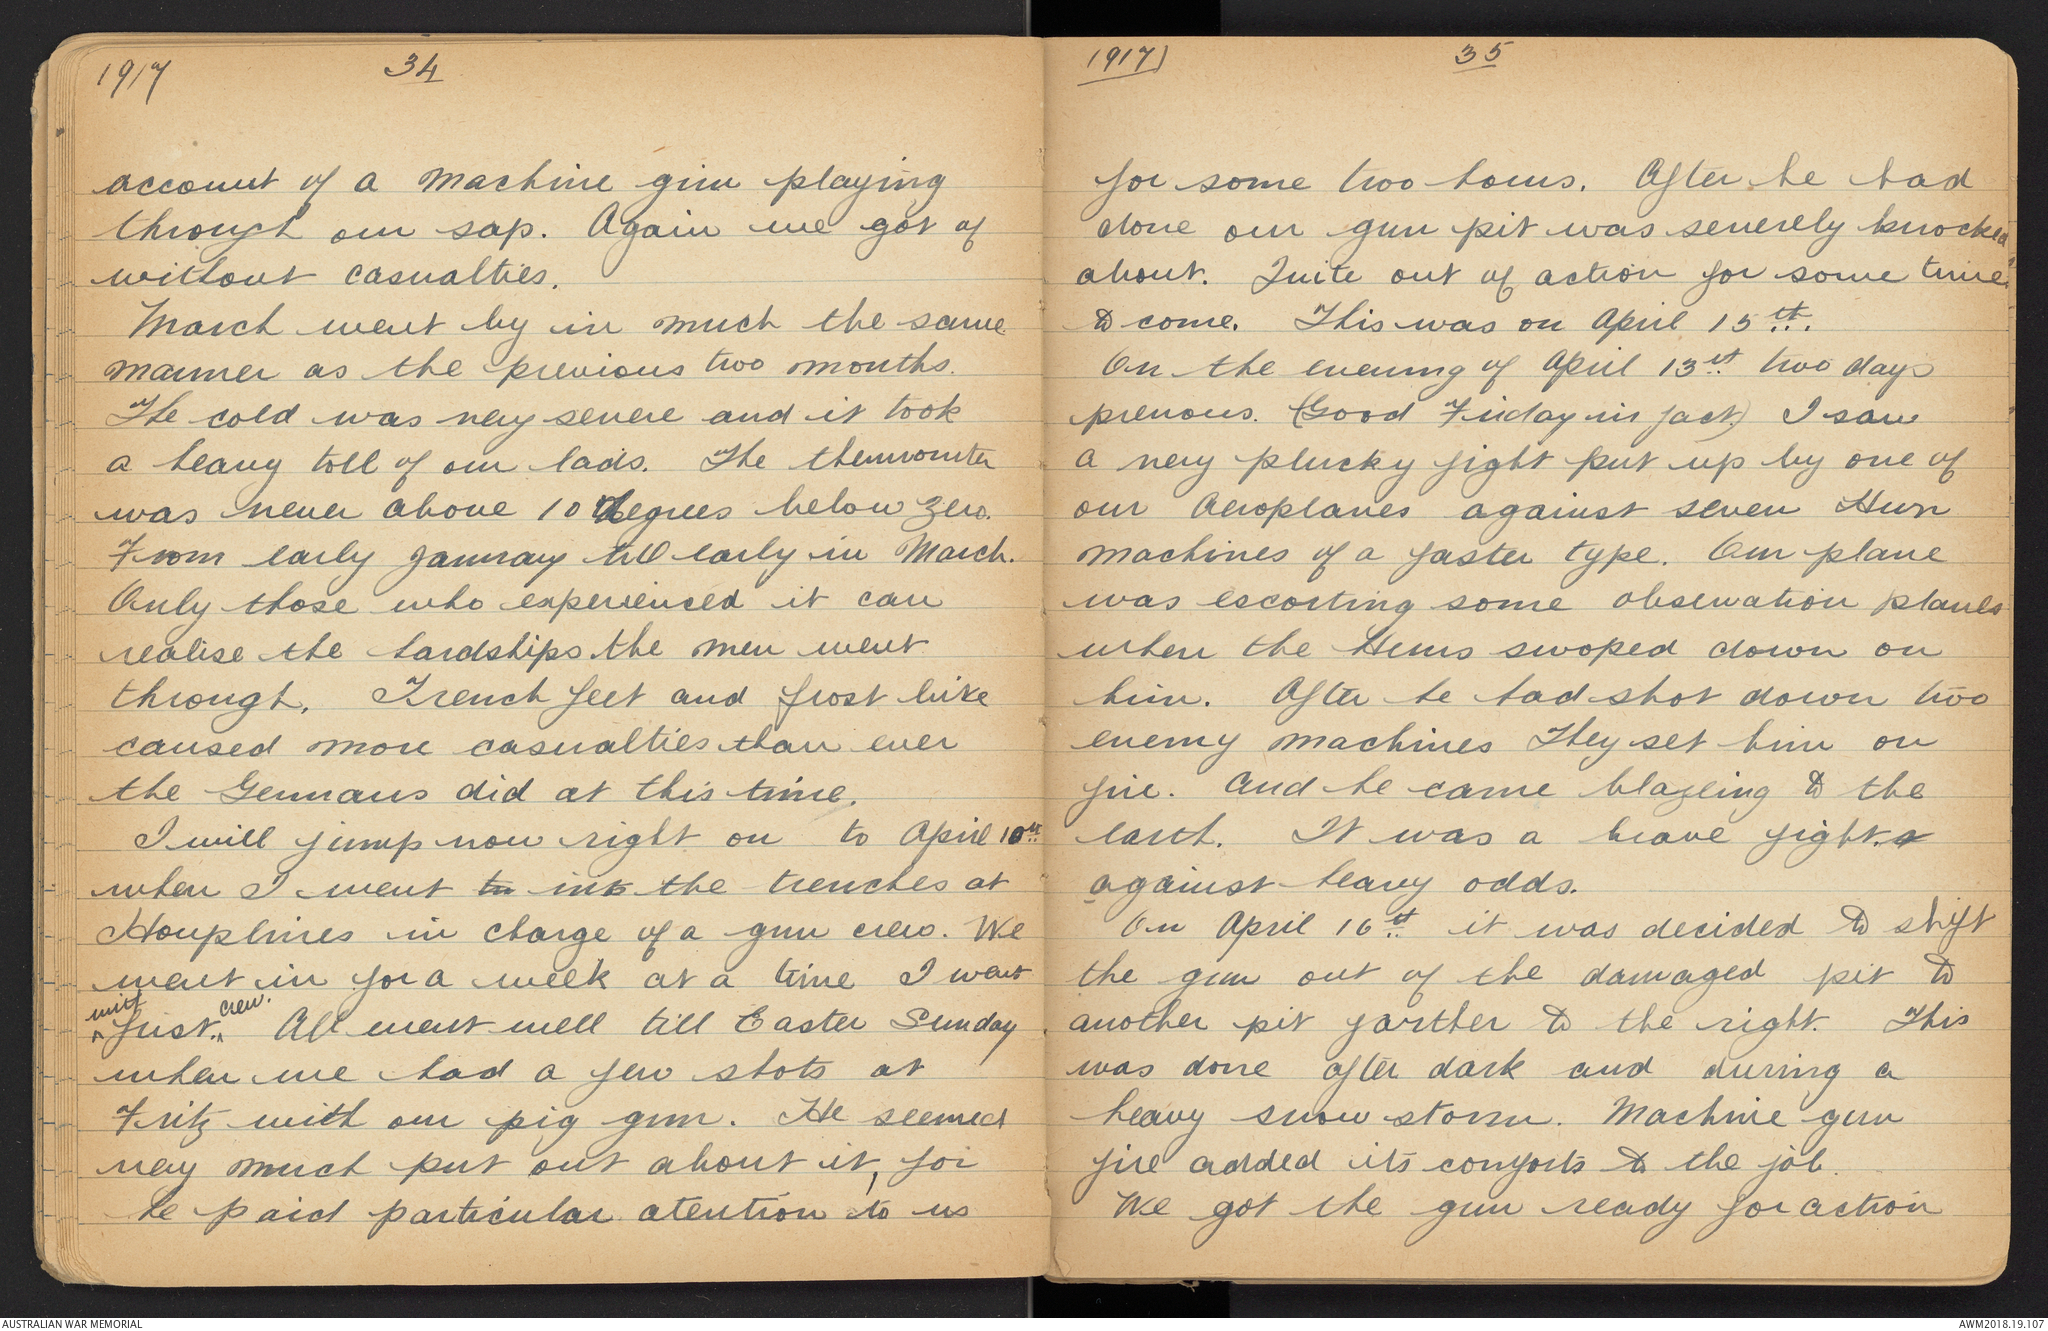 1917 34
account of a machine gun playing
through our sap. Again we got of
without casualties.
March went by in much the same
manner as the previous two months.
The cold was very severe and it took
a heavy toll of our lads. The thermomter
was never above 10 degrees below zero.
From early January till early in March.
Only those who experienced it can
realise the hardships the men went
through. Trench feet and frost bite
caused more casualties than ever
the Germans did at this time.
I will jump now right on to April 10th
when I went to into the trenches at
Houplines in charge of a gun crew. We
went in for a week at a time I went
with first crew. All went well till Easter Sunday
when we had a few shots at
Fritz with our pig gun. He seemed
very much put out about it, for
he paid particular atention to us
1917) 35
for some two hours. After he had
done our gun pit was severely knocked
about. Quite out of action for some time
to come. This was on April 15th.
On the evening of April 13th two days
prevous. (Good Friday in fact.) I saw
a very plucky fight put up by one of
our Aeroplanes against seven Hun
machines of a faster type. Our plane
was escorting some observation planes
when the Huns swoped down on
him. After he had shot down two
enemy machines They set him on
fire. And he came blazeing to the
earth. It was a brave fight.
against heavy odds.
On April 16th it was decided to shift
the gun out of the damaged pit to
another pit farther to the right. This
was done after dark and during a
heavy snow storm. Machine gun
fire added its comforts to the job.
We got the gun ready for action
AUSTRALIAN WAR MEMORIAL AWM2018.19.107